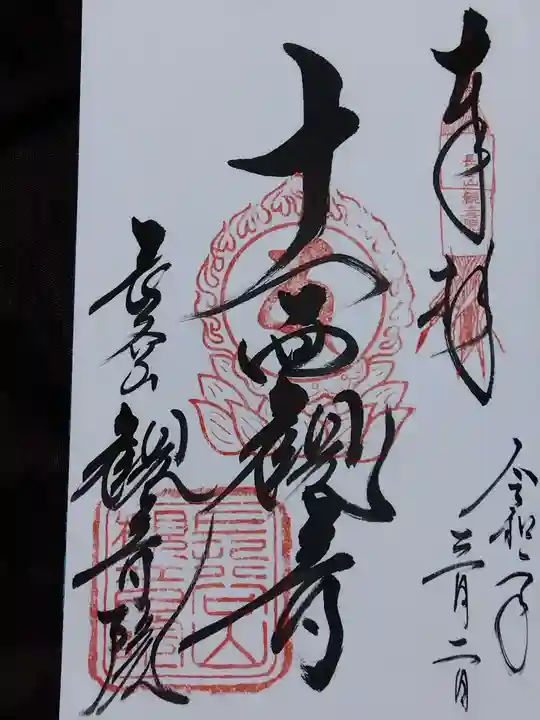 奉拝
令和二年
三月二日
十一面観音
長谷山
観音院